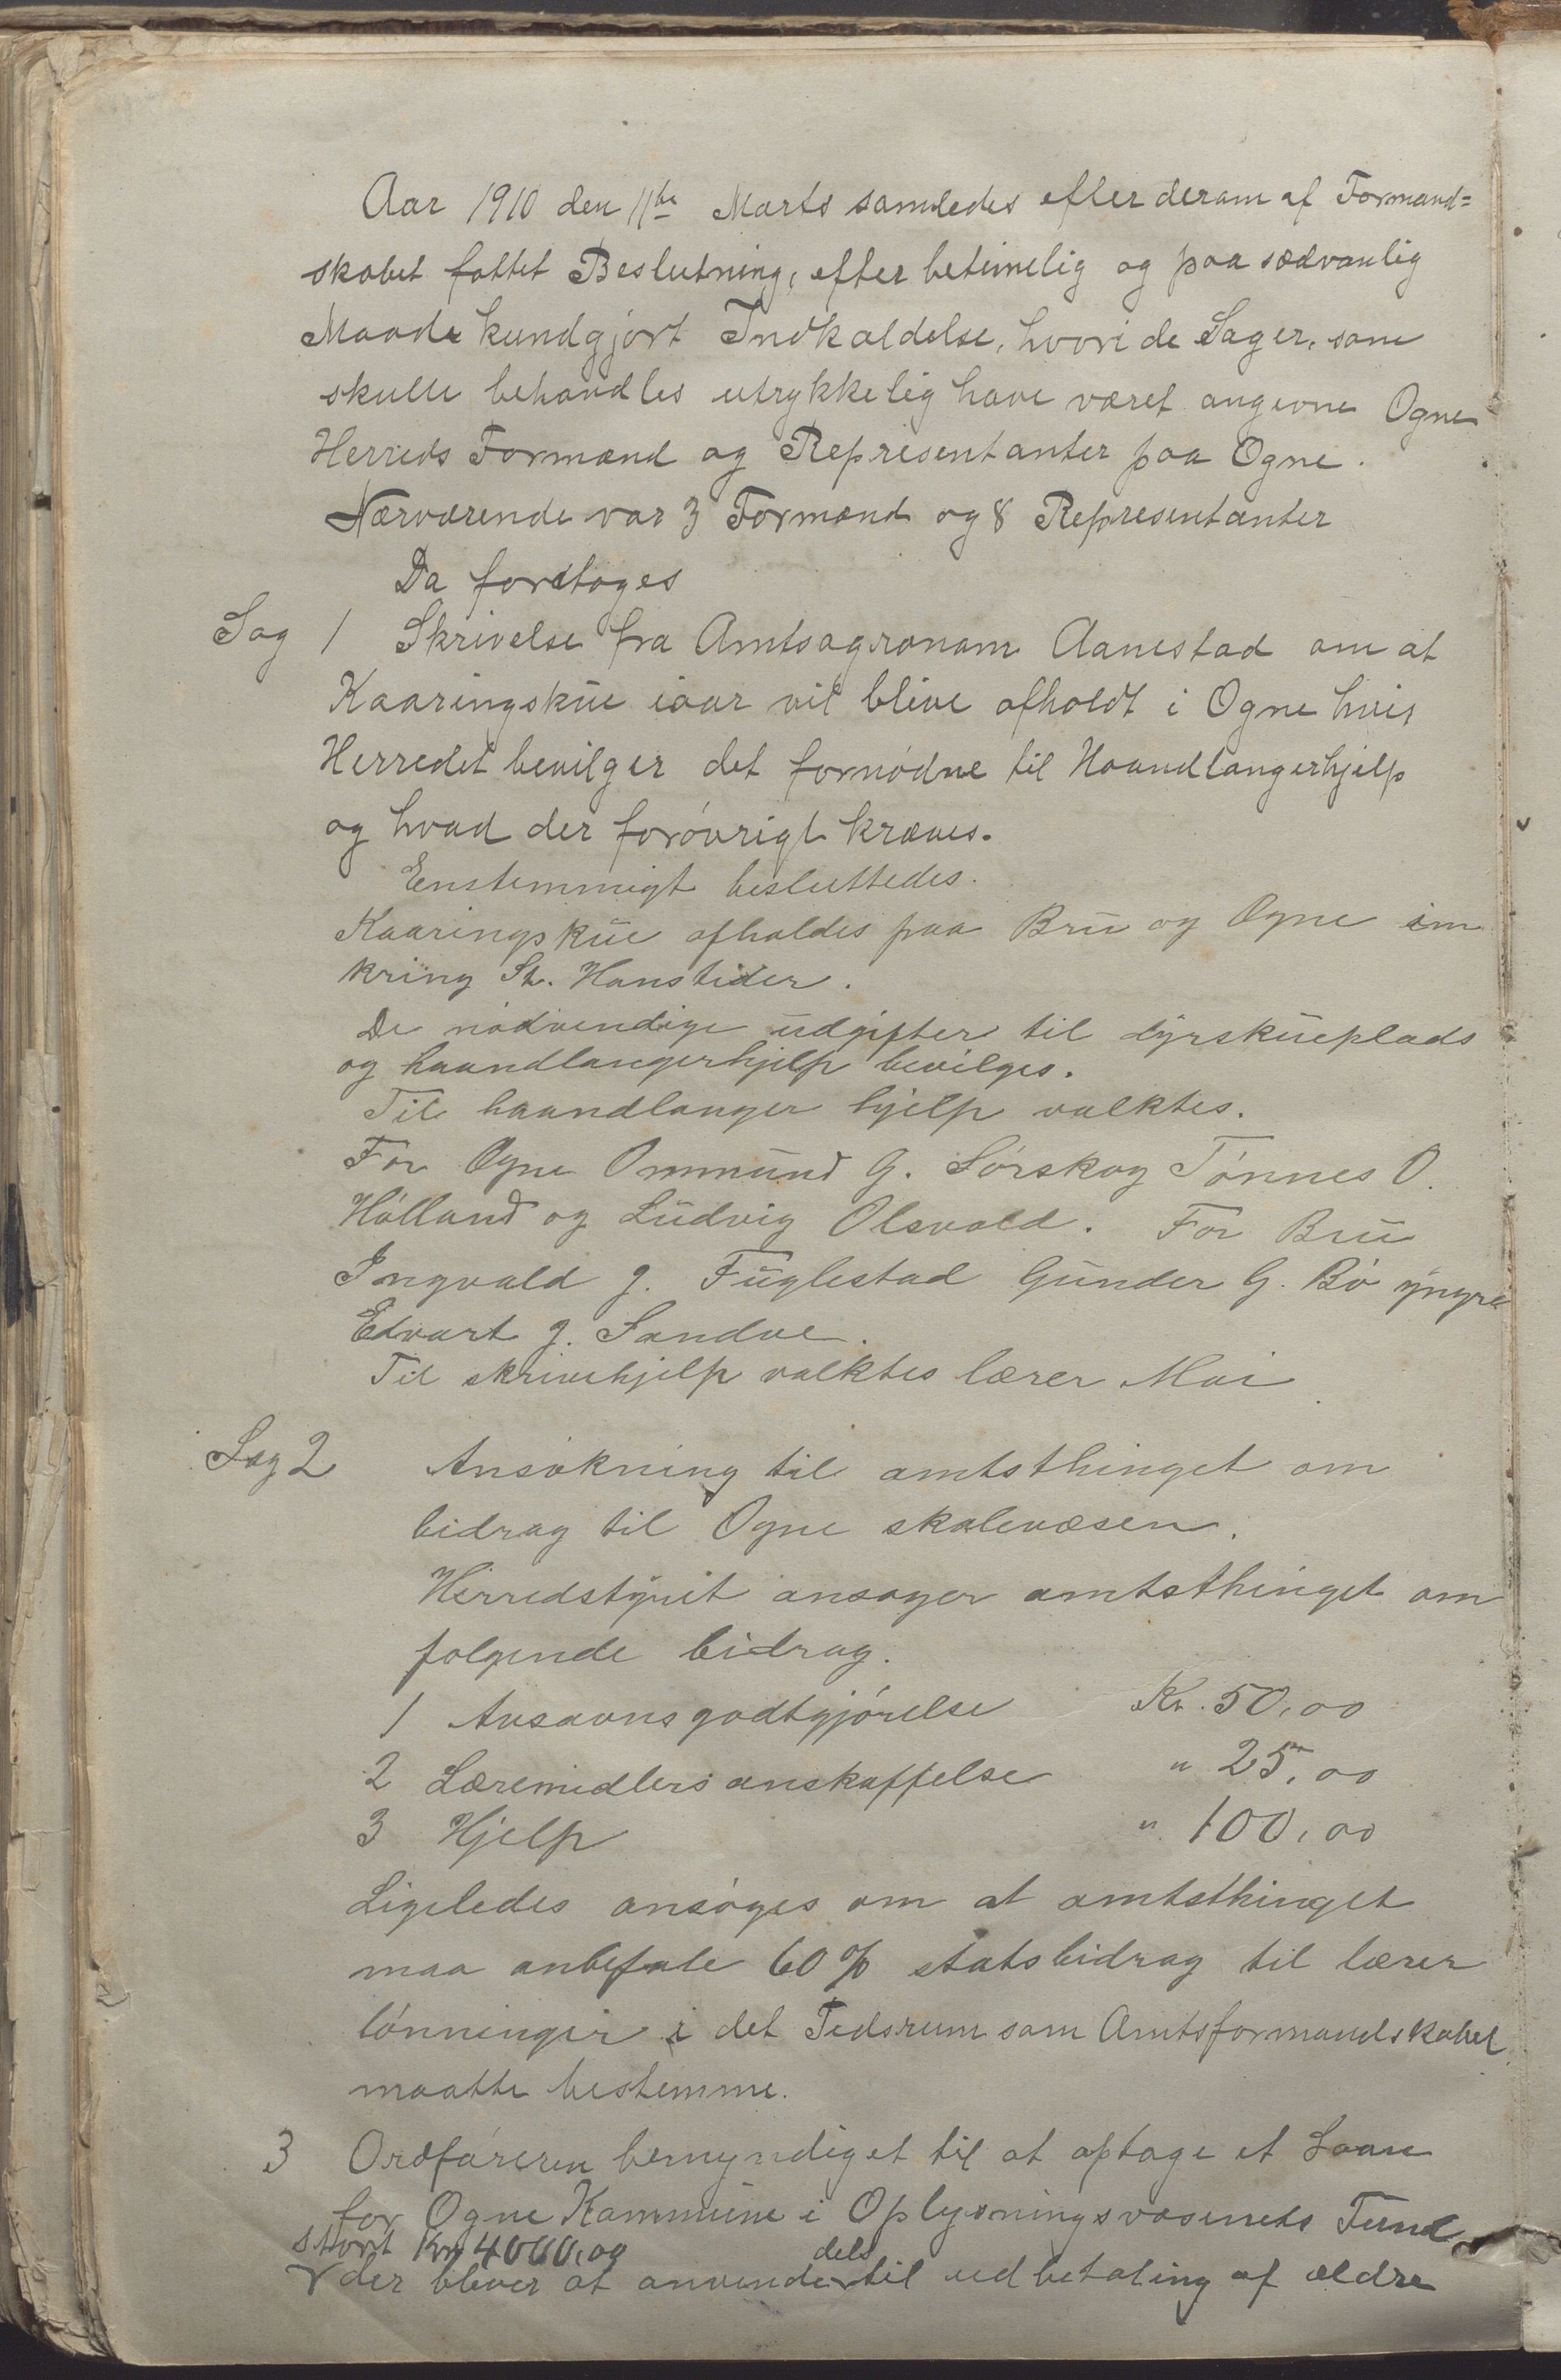 Aar 1910 den 11te Marts samledes efter derom af Formand=
skabet fattet Beslutning, efter betimelig og paa sædvanlig
Maade kundgjort Indkaldelse, hvori de Sager, som
skulle behandles utrykkelig have været angivne Ogne
Herreds Formænd og Representanter paa Ogne.
Nærværende var 3 Formænd og 8 Representanter
Da foretoges
Sag 1 Skrivelse fra Amtsagronom Aanestad om at
Kaaringskue iaar vil blive afholdt i Ogne hvis
Herredet bevilger det fornødne til Haandlangerhjelp
og hvad der forøvrigt kræves.
Enstemmigt besluttedes.
Kaaringskue afholdes paa Bru og Ogne om
kring St. Hanstider.
De nødvendige udgifter til dyrskueplads
og haandlangerhjelp bevilges.
Til haandlanger hjelp valktes.
For Ogne Ommund G. Sørskog Tønnes O.
Hølland og Ludvig Olsvold. For Bru
Ingvald J. Fuglestad Gunder G. Bø yngre
Edvart J. Sandve.
Til skrivehjelp valktes lærer Moi
Sag 2 Ansøkning til amtsthinget om
bidrag til Ogne skolevæsen.
Herredstyret ansøger amtsthinget om
følgende bidrag.
1 Avsavnsgodtgjørelse Kr. 50,00
2 Læremidlers anskaffelse " 25,00
3 Hjelp " 100,00
Ligeledes ansøges om at amtsthinget
maa anbefale 60 % statsbidrag til lærer
lønninger i det Tidsrum som Amtsformandskabet
maatte bestemme.
3 Ordføreren bemyndiget til at optage et Laan
for Ogne Kommune i Oplysningsvæsenets Fund
stort Kr 4000,00 dels
der bliver at anvende til udbetaling af ældre